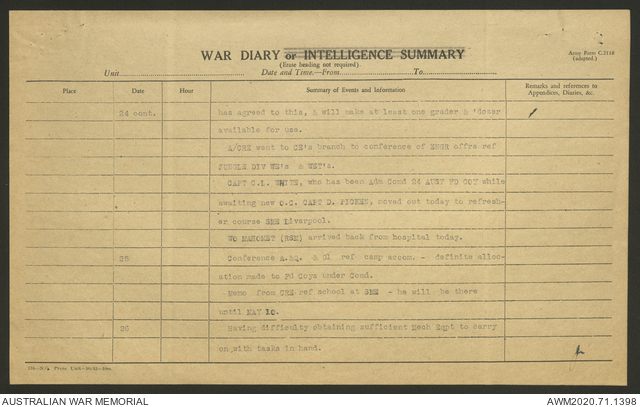 WAR DIARY or INTELLIGENCE SUMMARY
(Erase heading not required).
Army Form C.2118
(adapted.)
Unit
Date and Time.—From
To
Place
Date
Hour
Summary of Events and Information
Remarks and references to
Appendices, Diaries, &c.
24 cont.
has agreed to this, & will make at least one grader & 'dozer
available for use.
A/CRE went to CE's branch to conference of ENGR offrs ref
JUNGLE DIV WE's & WET's.
CAPT C.L. WHITE, who has been Adm Comd 24 AUST FD COY while
awaiting new O.C. CAPT D. PICKEN, moved out today to refresh-
er course SME Liverpool.
WO MAHOMET (RSM) arrived back from hospital today.
25
Conference A.&Q. & G1 ref camp accom. - definite alloc-
ation made to Fd Coys under Comd.
Memo from CRE ref school at SME - he will be there
until MAY 10.
26
Having difficulty obtaining sufficient Mech Eqpt to carry
on with tasks in hand.
AUSTRALIAN WAR MEMORIAL
AWM2020.71.1398